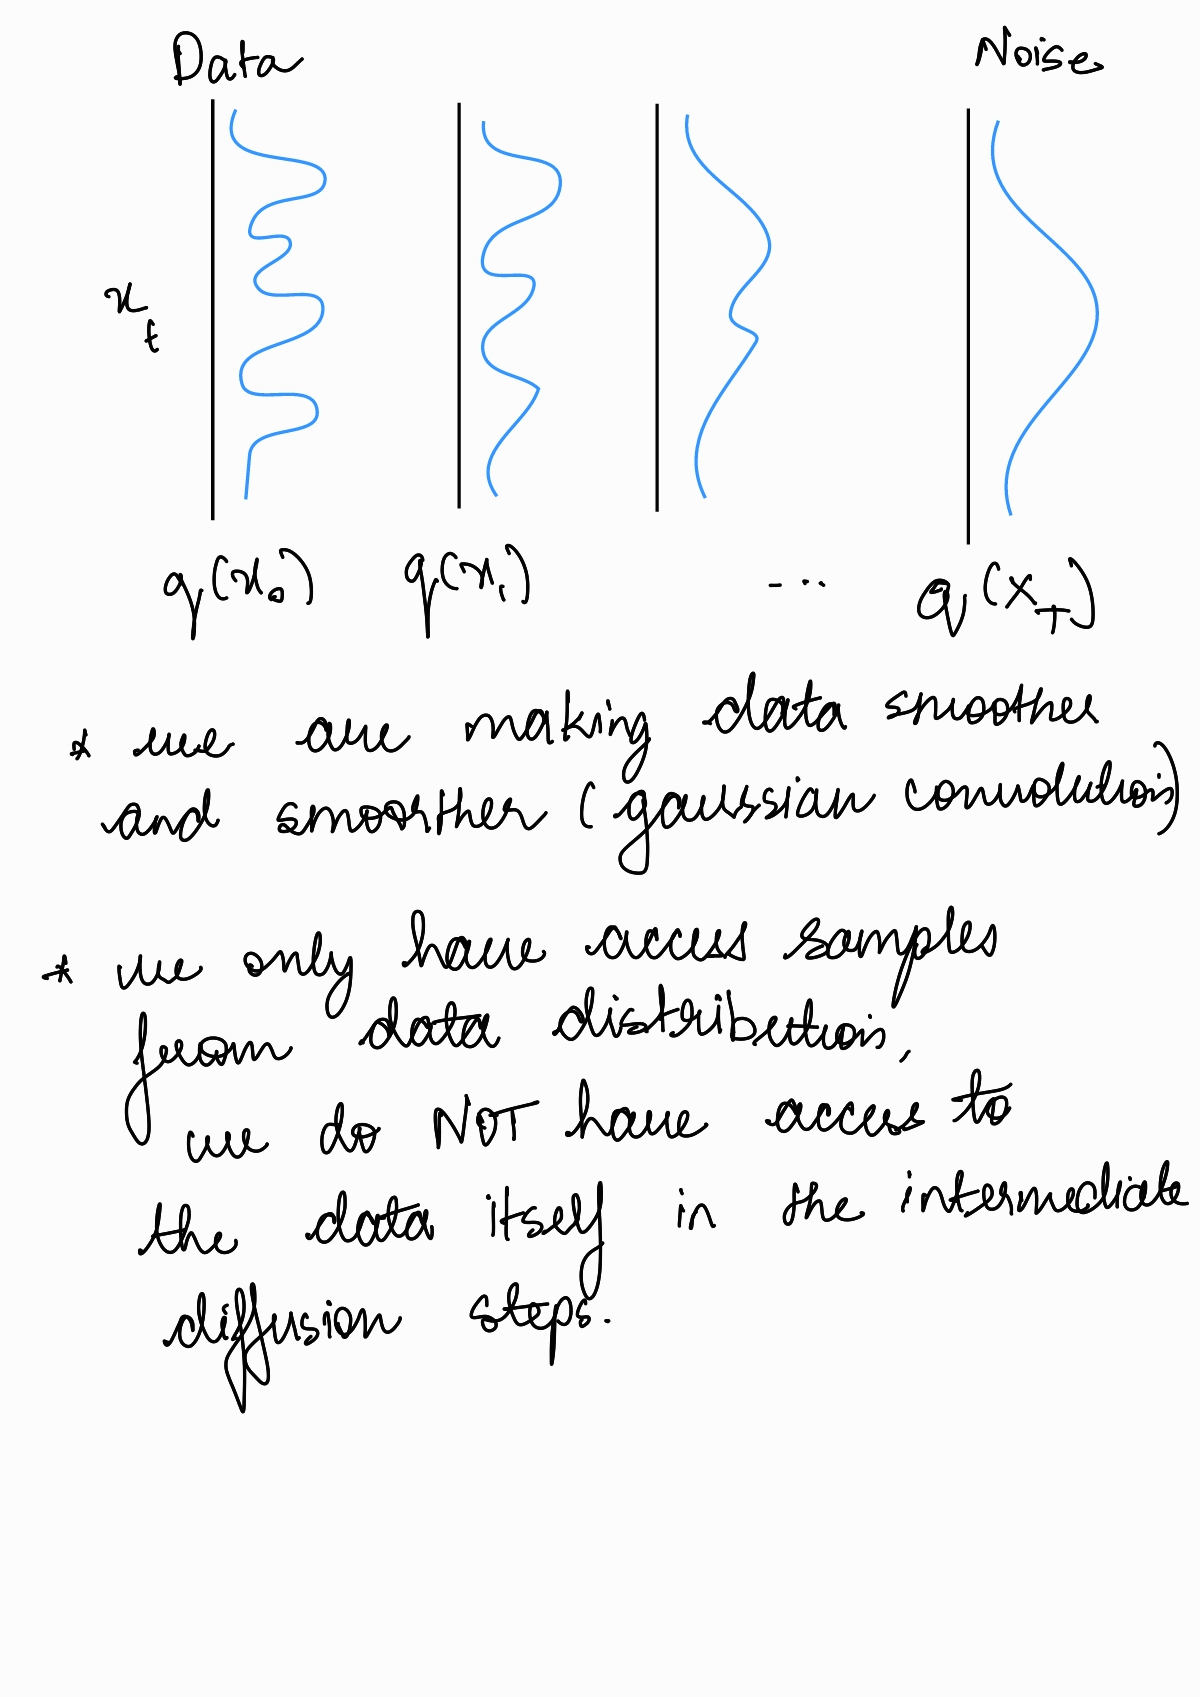 Data Noise
x_t
q(x_0) q(x_1) -·· q(x_T)
* we are making data smoother
and smoother (gaussian convolution)
* we only have access samples
from data distribution,
we do NOT have access to
the data itself in the intermediate
diffusion steps.